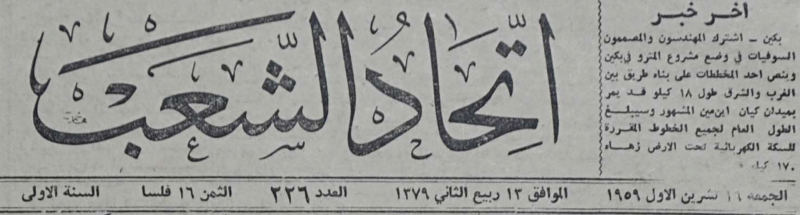 آخر خبر
بكين - اشترك المهندسون والمصممون
السوفيات في وضع مشروع المترو في بكين
وينص احد المخططات على بناء طريق بين
الغرب والشرق طول ١٨ كيلو قد يمر
بميدان كيان اين مين المشهور وسيبلغ
الطول العام لجميع الخطوط المقررة
للسكة الكهربائية تحت الارض زهاء
١٧٠
اتحاد الشعب
الجمعة ١٦ تشرين الاول ١٩٥٩ الموافق ١٣ ربيع الثاني ١٣٧٩ العدد ٢٢٦ الثمن ١٦ فلسا السنة الاولى